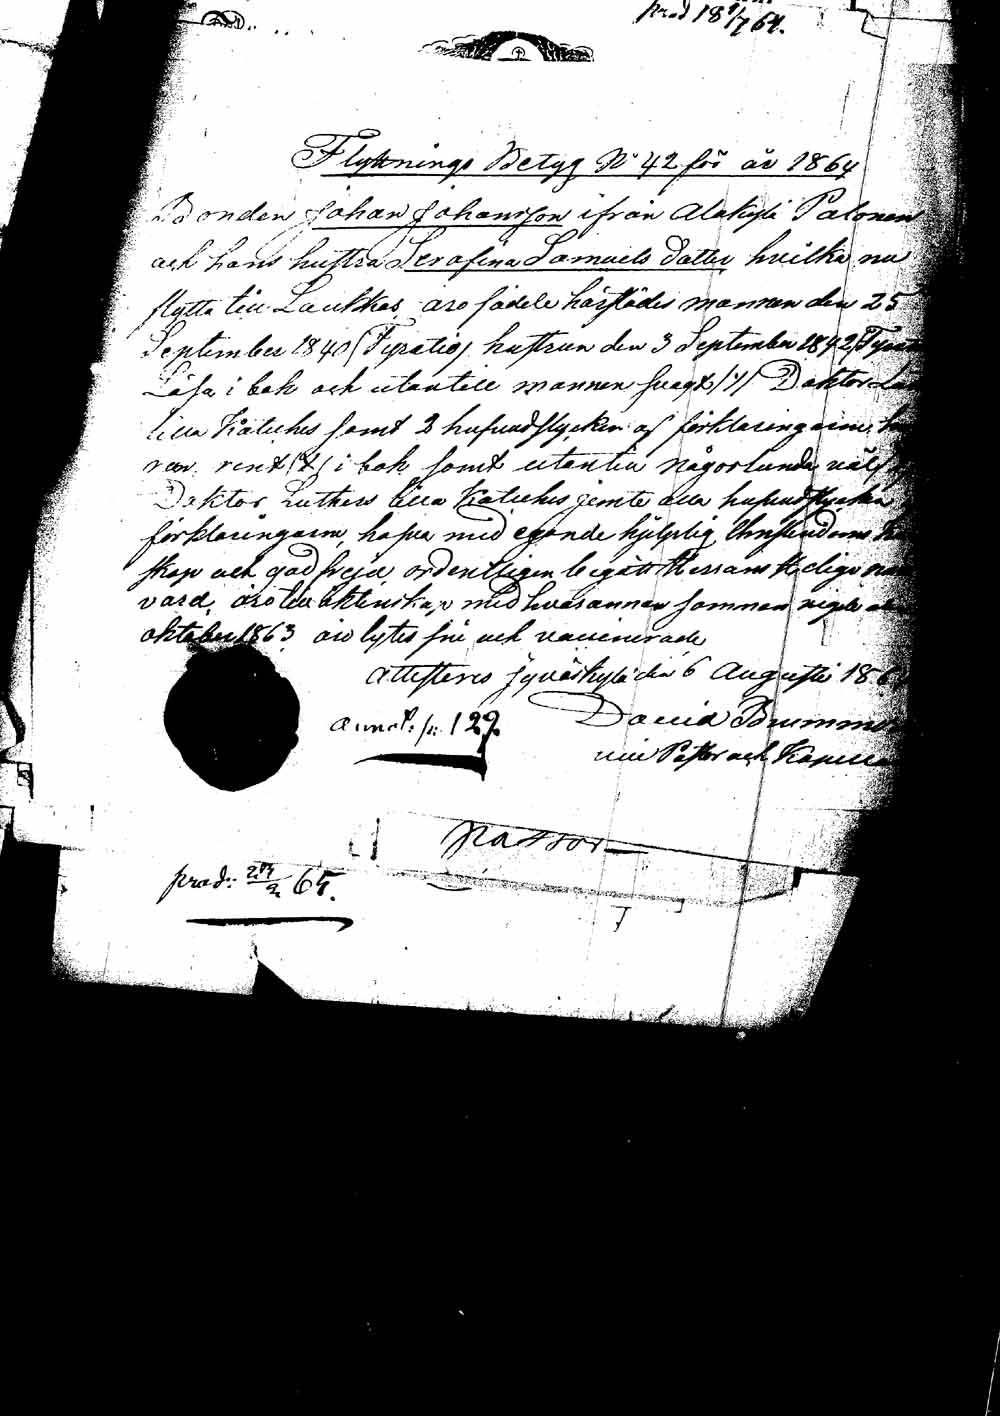 prod 18 1/7 64.
Flyttnings Betyg No 42 för år 1864
Bonden Johan Johansson ifrån Alakylä Palonen
och hans hustru Serafina Samuels Dotter hvilka nu
flytta till Laukkas, äro födde härstädes mannen den 25
September 1840 hustrun den 3 September 1842
Läsa i bok och utantill mannen svagt Doktor
lilla Kateches samt 2 hufvudstycken af förklaringarne,
rent i bok samt utantill någorlunda väl
Doktor Luthers lilla Kateches jemte alla hufvudstycken
förklaringarne, hafva med egande hjelplig Christendoms
skap och god frejd, ordentligen begått H
vard, äro till äktenskap med hvarannan samman
oktober 1863 äro lytes frie och vaccinerade
Attesteras Jyväskylä den 6 Augusti 18
David
vice Pastor och
annot. p: 129.
Passor
prod: 65.